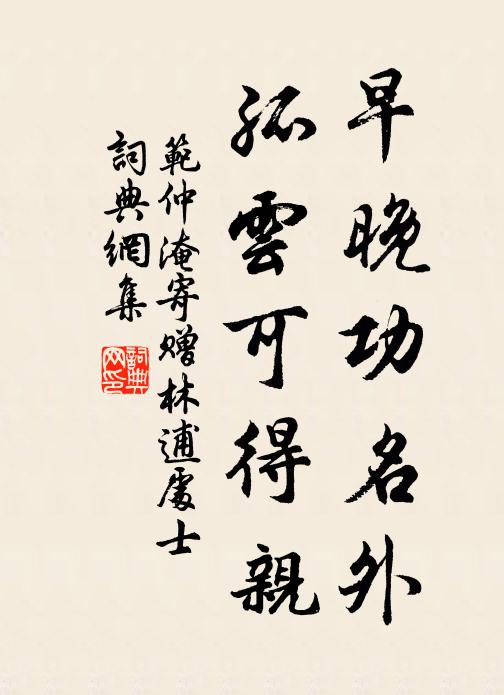 早晚功名外
孤雲可得親
範仲淹寄贈林逋處士
詞典網集
詞典网印